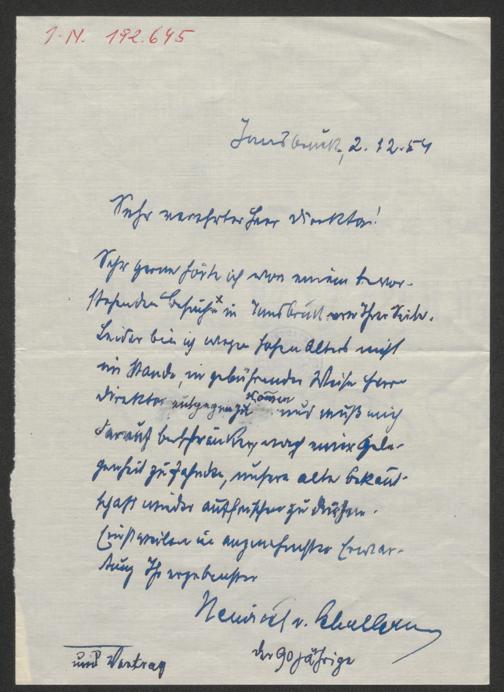 I.N. 192.645
Innsbruck, 2.12.54
Sehr verehrter Herr Direktor!
Sehr gerne hörte ich von einem bevor-
stehenden Besuche x in Innsbruck von Ihrer Seite.
Leider bin ich wegen hohen Alters nicht
im Stande, in gebührender Weise Herrn
Direktor entgegenzukommen und muß mich
darauf beschränken, nach einer Gele-
genheit zu fahnden, unsere alte Bekannt-
schaft wieder auffrischen zu dürfen.
Einstweilen in angenehmster Erwar-
tung Ihr ergebenster
Heinrich v. Schullern
der 90jährige
und Vortrag